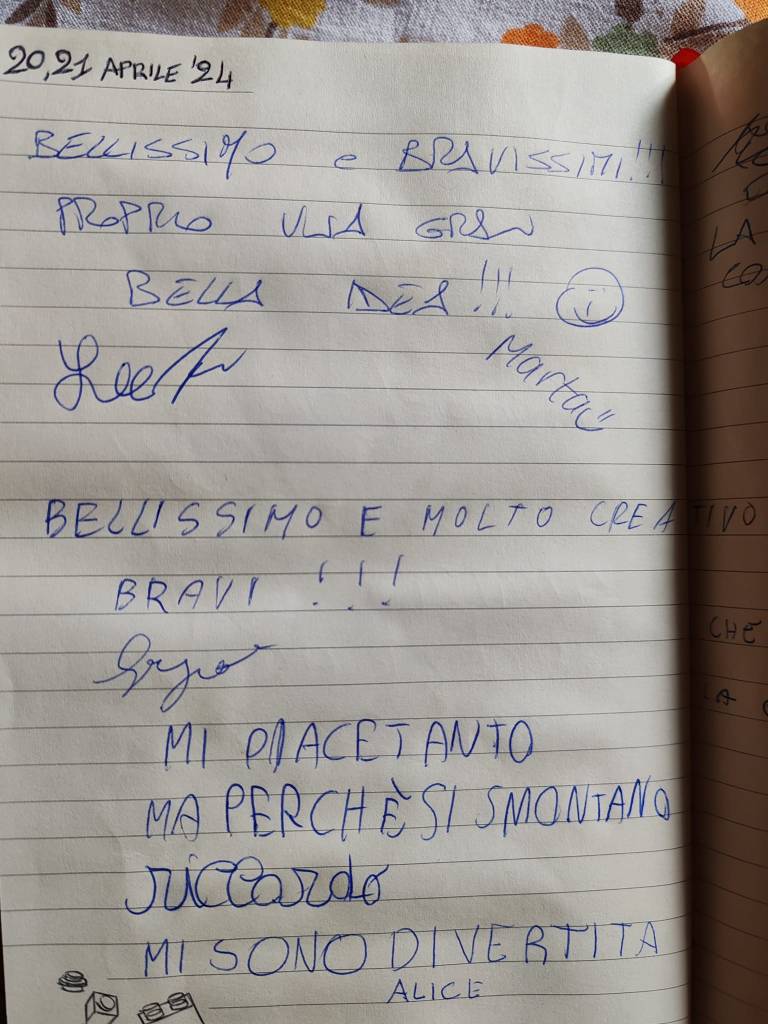 20,21 APRILE '24
BELLISSIMO e BRAVISSIMI!!!
PROPRIO UNA GRAN
BELLA IDEA!!!
Marta
BELLISSIMO E MOLTO CREATIVO
BRAVI !!!
CHE
LA
MI PIACE TANTO
MA PERCHÈ SI SMONTANO
riccardo
MI SONO DIVERTITA
ALICE
LA